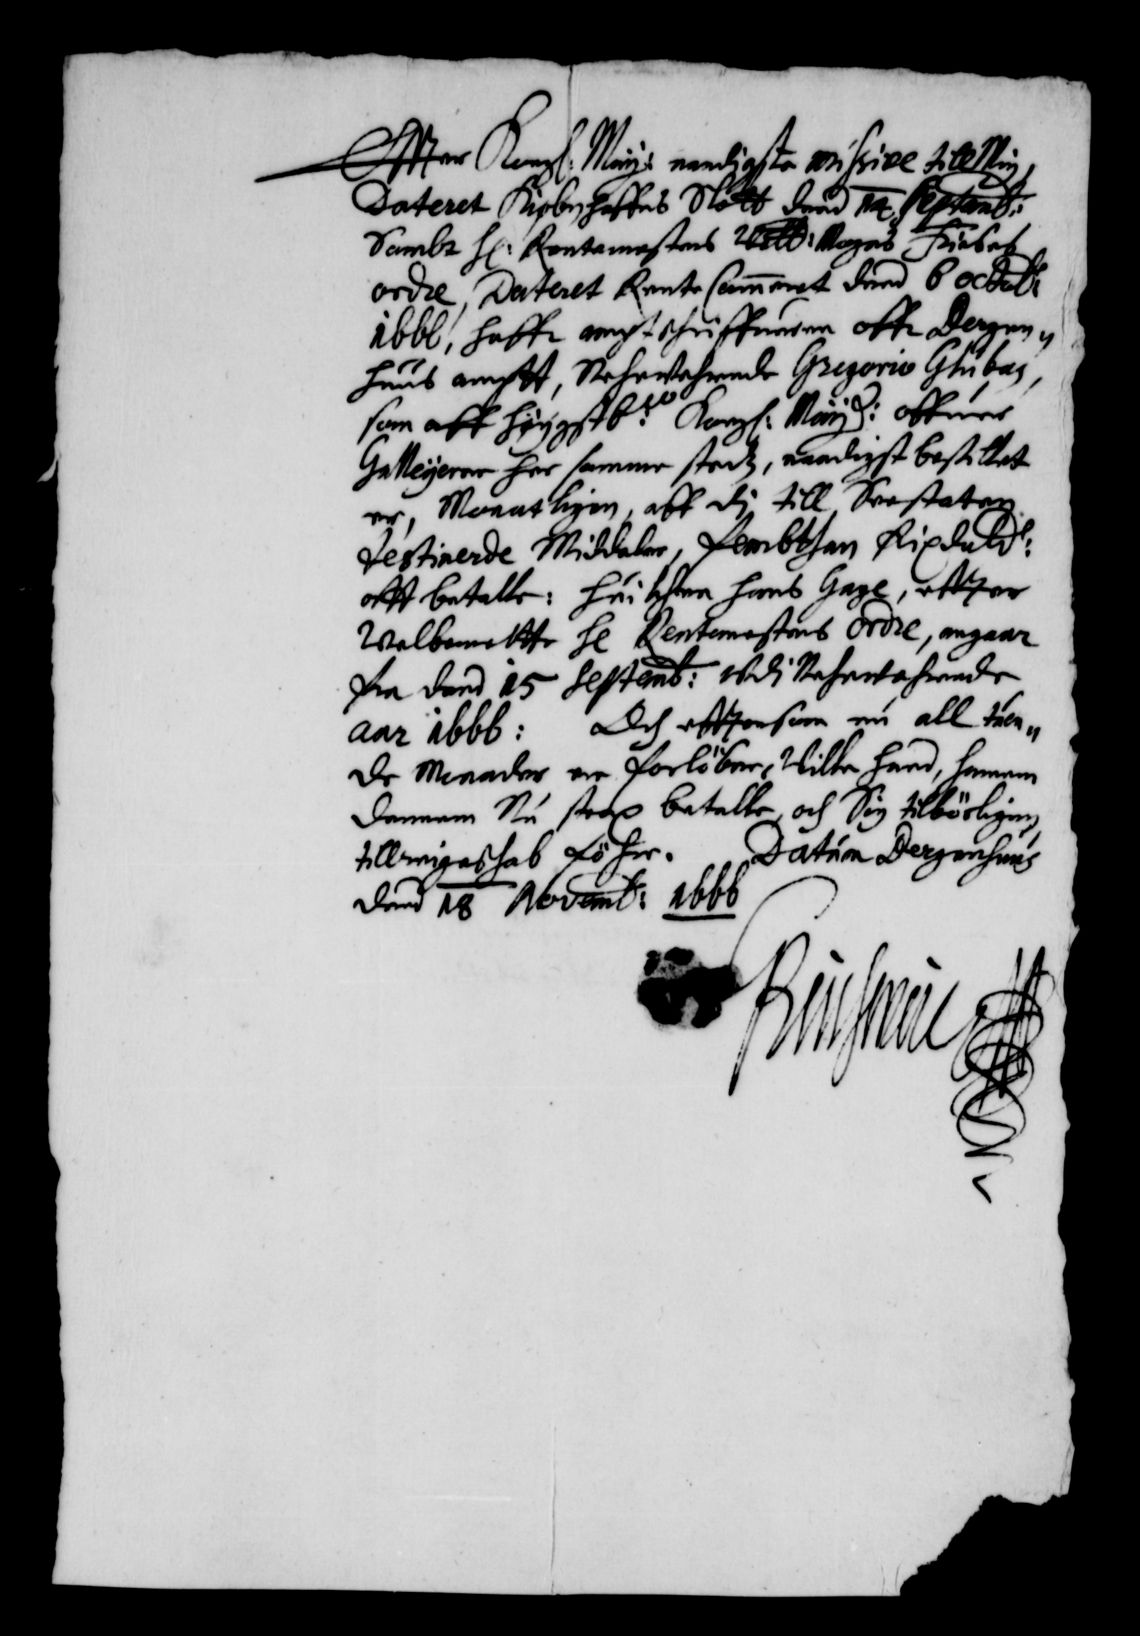 Effter Kongl: Maÿ: naadigste missive till Mig,
Dateret Kiøbenhaffns Slott dend 14 Septemb:
Sambt Hr: Rentemesters Velb: Mogens Friises
ordre, Dateret Rente Cammeret dend 6 Octob:
1666, haffr amptschriffueren offr Bergen„
huus ampt, Nerverende Gregorio
som aff høygstb:te Kongl: Maÿ: offuer
Galleyerne her samme steds, naadigst bestillet
er, Monatligen, aff di till Søestaten
destinerde Middeler, Rixdald:
att betalle: huilchen hans Gage, effter
Welbemelte Hr Rentemesters Ordre, angaar
fra dend 15 Septemb: udi Nerverende
aar 1666: Och effttersom nu all tuen„
de Maaneder ere forløben, Wille hand, hannem
dennem Nu strax betalle, och Sig tilbörligen
till regenschab föhre. Datum Bergenhuus
dend 18 Novemb: 1666